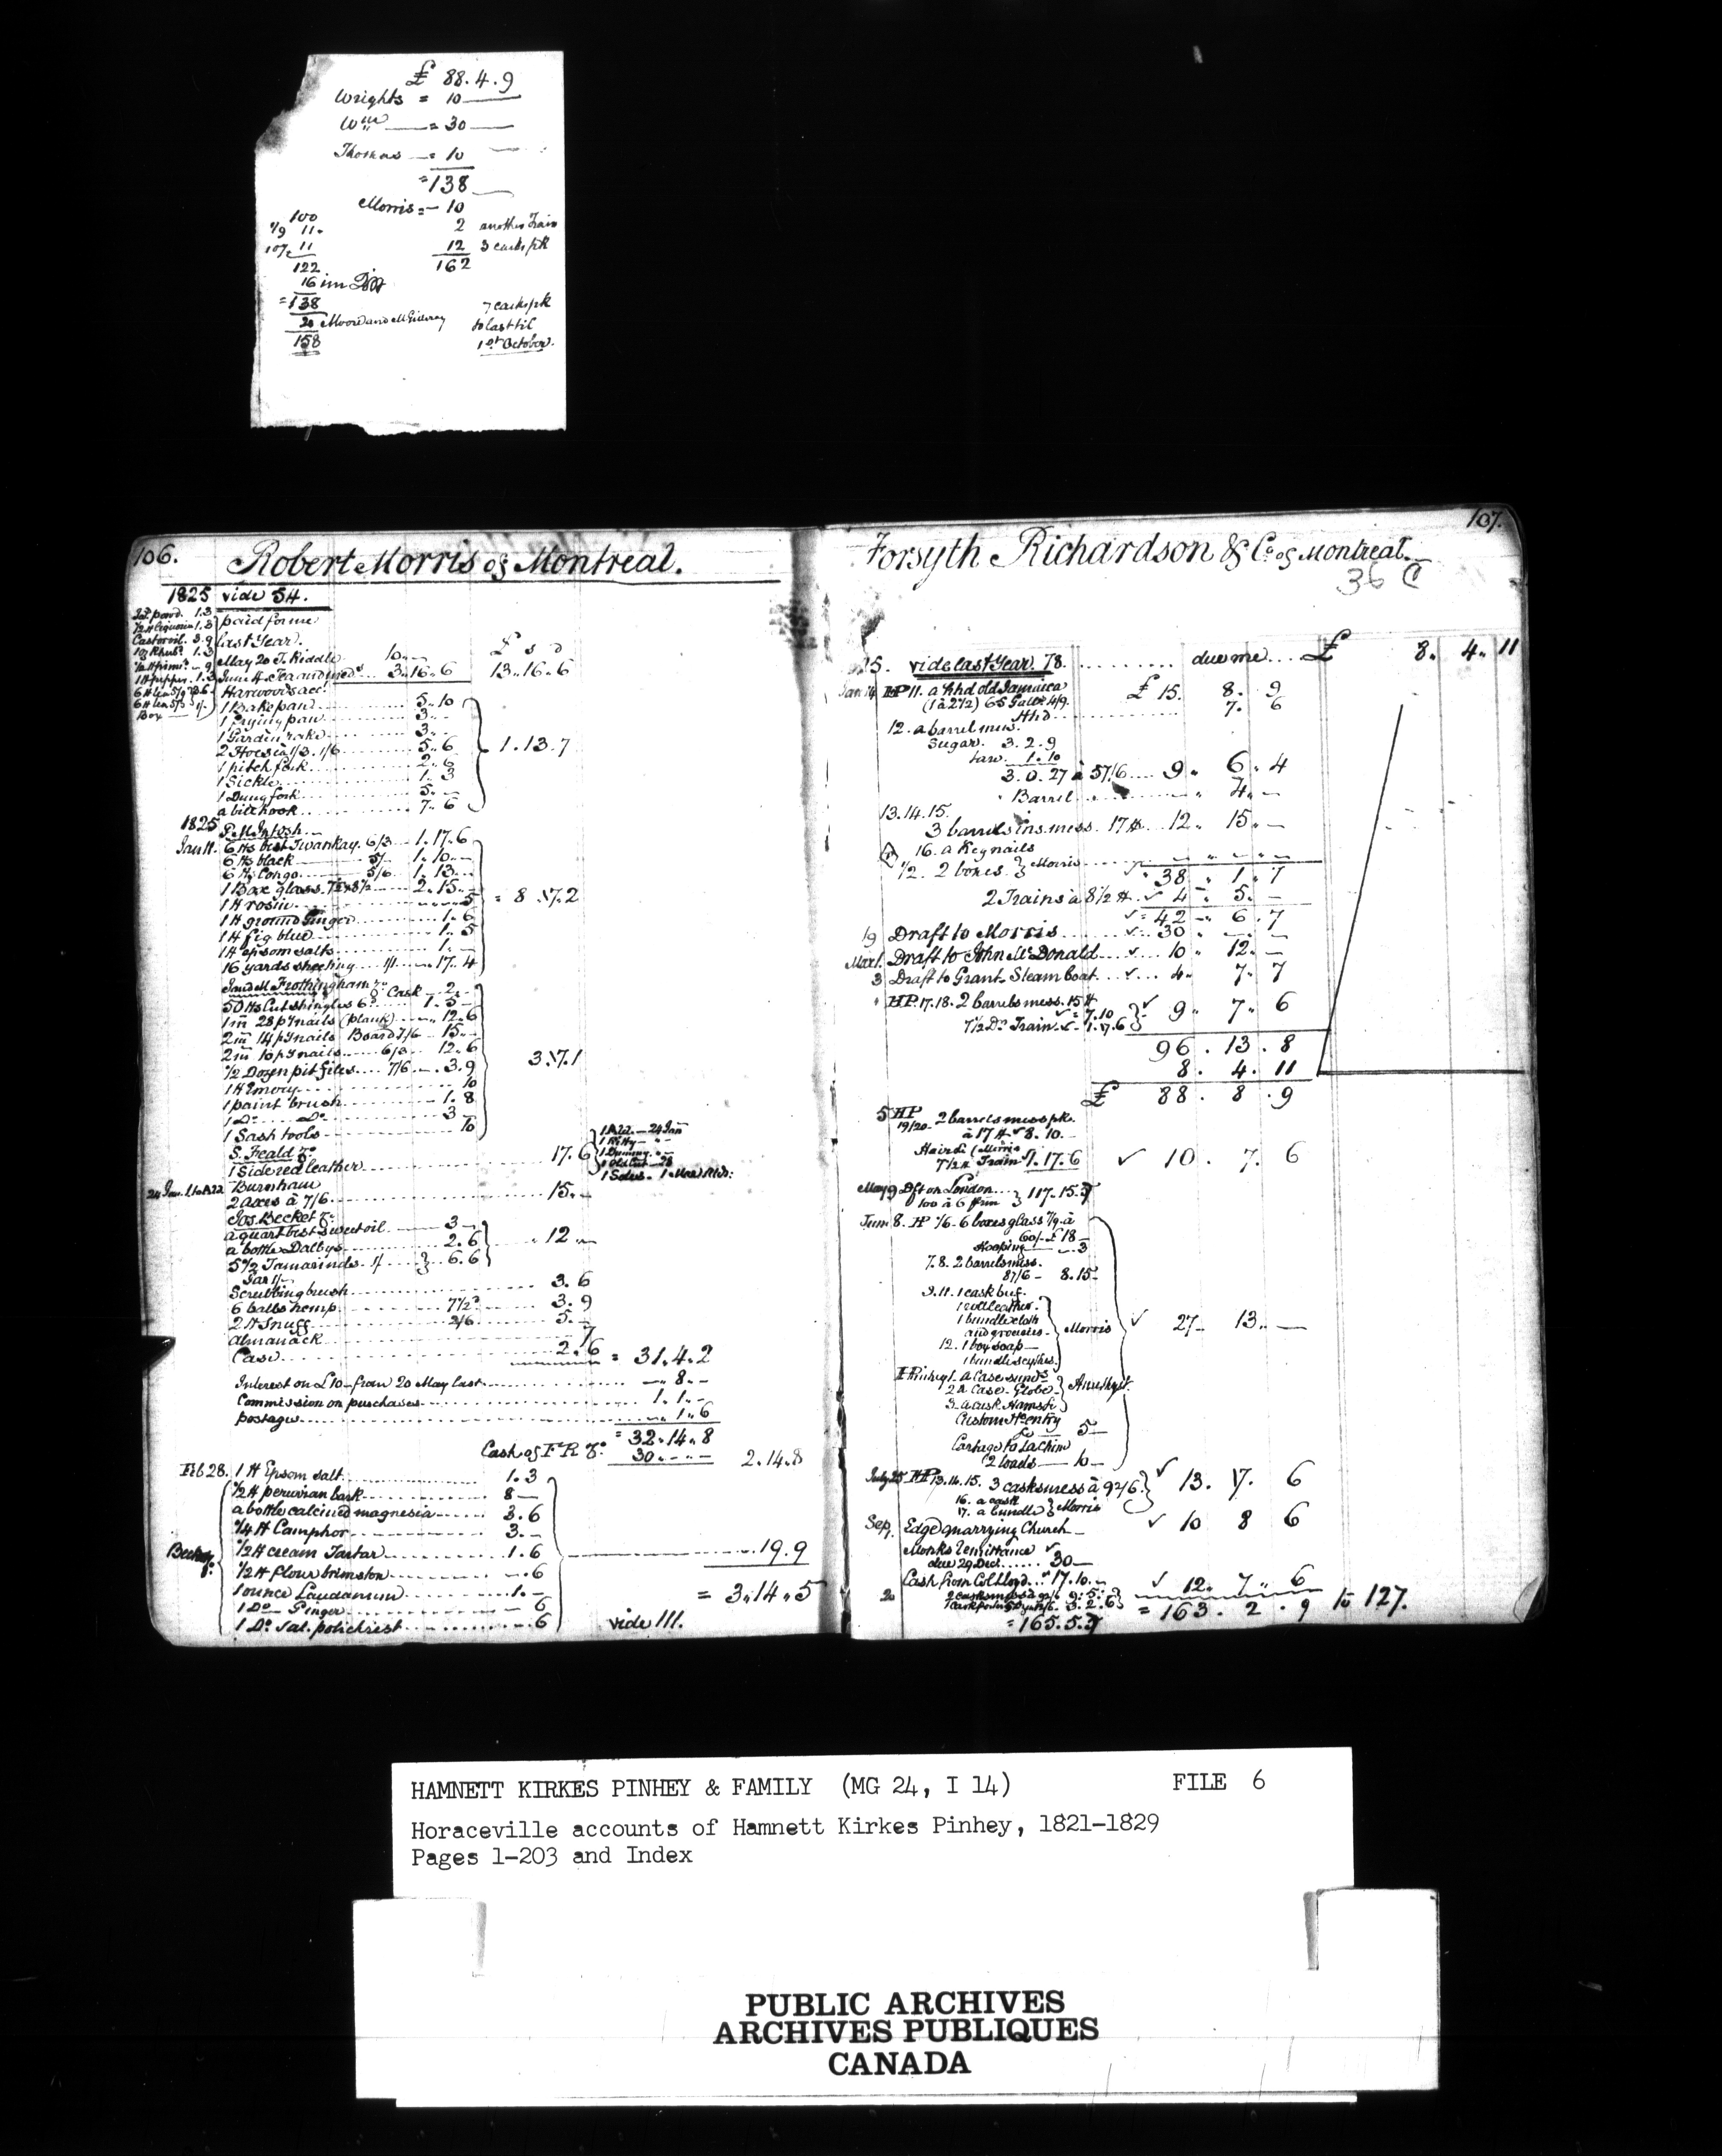 £ 88.4.9
Wrights = 10 —
Wm — = 30 —
Thomas — = 10
= 138
Morris = — 10
100
7/9 11. 2 another Train
10/7 11 12 3 casks pk
122 162
16 im
= 138 7 casks pk
20 Moore and McGilivray to last til
158 1st October.
106.
Robert Morris of Montreal.
1825 vide 54.
1.3 paid for me
1/2 H Liquorice 1.3
Castor oil. 3.9 last Year.
1 oz Rhub. 1.3 May 20 T. Riddle 10.— £ s D
June 4. Tea and 3.16.6 13.16.6
1 H pepper. 1.3 Harwoods acc.
Box
1 Bakepan 5.10
1 frying pan 3.—
1 Garden rake 3.—
2 Hoes à 1/3. 1/6 5.6 1.13.7
1 pitch fork 2.6
1 Sickle 1.3
1 Dung fork 5.—
a bill hook 7.6
1825 P. McIntosh
Jan 11. 6 Hs best Twankay. 6/3 1.17.6
6 Hs black 5/- 1.10.—
6 Hs Congo 5/6 1.13.—
1 Box glass. 7 1/2 x 8 1/2 2.15.—
1 H rosin 5 = 8.17.2
1 H ground Ginger 1.6
1 H fig blue 1.5
1 H epsom salts 1.—
16 yards sheeting 1/1 17.4
J and M Frothingham Cask 2.—
50 Hs Cut shingles 6d. 1.5.—
1 m 28 py nails (plank) 12.6
2 m 14 py nails Board 7/6 15.—
2 m 10 py nails 6/3 12.6
1/2 Dozen pit files 7/6 3.9 3.17.1
1 H Emory 10
1 paint brush 1.8
1 Do. Do. 3
1 Sash tools 10
S. Heald 17.6
1 Side red leather
24 Jan. Burnham
2 axes à 7/6 15.—
Jos. Becket
a quart best sweet oil 3.—
a bottle Dalbys 2.6 12.—
5 1/2 Tamarinds. 1/ 6.6
Jar 1/-
Scrubbing brush 3.6
6 balls hemp 7 1/2d 3.9
2 H Snuff 2/6 5.—
Almanack 7
Case 2.6 = 31.4.2
Interest on £10 — from 20 May last — 8.—
Commission on purchases 1.1.—
postage 1.6
= 32.14.8
Cash of F R 30.—.— 2.14.8
Feb 28. 1 H Epsom salt 1.3
1/2 H peruvian bark 8 —
a bottle calcined magnesia 3.6
1/4 H Camphor 3.—
1/2 H cream Tartar 1.6 19.9
1/2 H flour brimston .6
1 ounce Laudanum 1.— = 3.14.5
1 Do. Ginger — 6
1 Do. Sal. polichrest .6 vide 111.
107.
Forsyth Richardson & Co. of Montreal.
36 C
25. vide last Year 78. due me £ 8. 4. 11
Jan 14 HP 11. a hhd old Jamaica £ 15. 8. 9
(1 à 2 1/2) 65 Galls 4/9.
Hhd 7. 6
12. a barrel mus.
Sugar. 3.2.9
tare 1.10
3.0.27 à 57/6 9. 6. 4
Barrel 4. —
13.14.15.
3 barrels ins. mess. 17 H. 12. 15. —
16. a Keg nails
1/2. 2 boxes. } Morris
38. 1. 7
2 Trains à 8 1/2 H. 4. 5. —
= 42 — 6. 7
19 Draft to Morris 30
Mar 1. Draft to John McDonald 10. 12. —
3 Draft to Grant. Steam boat 4. 7. 7
HP. 17.18. 2 barrels mess. 15 H 7.10
7 1/2 Do. Train 1.17.6 9. 7. 6
96. 13. 8
8. 4. 11
£ 88. 8. 9
5 HP
19/20. 2 barrels mess pk.
à 17 H 8.10.—
7 1/2 H Train 1.17.6 10. 7. 6
May 9 Dft on London
100 à 6 117.15.
June 8. HP 1/6. 6 boxes glass 7/9 à
60/- £ 18 —
Hooping — 3
7.8. 2 barrels mess.
87/6 — 8.15 —
9.11. 1 cask buf.
1 roll leather.
1 bundle cloth
and groceries. Morris 27. 13. —
12. 1 box soap —
1 bundle scythes.
H Pinhey 1. a Case sunds
2 a Case. Globe.
3. a cask Hams &
Custom Ho. entry
5 —
Cartage to Lachine
2 loads — 10 —
July 25 HP 13.14.15. 3 casks mess à 92/6. 13. 17. 6
16. a cask
17. a bundle } Morris
Sep. Edge quarrying Church — 10 8 6
Monks remittance
due 29 Dec. 30 —
Cash from Col Lloyd 17.10.— 12. 7. 6
= 163. 2. 9 to 127.
= 165.5.
HAMNETT KIRKES PINHEY & FAMILY (MG 24, I 14) FILE 6
Horaceville accounts of Hamnett Kirkes Pinhey, 1821-1829
Pages 1-203 and Index
PUBLIC ARCHIVES
ARCHIVES PUBLIQUES
CANADA